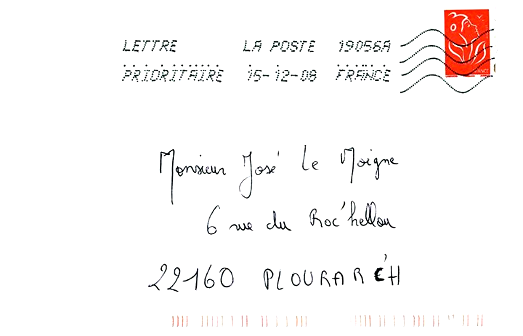 LETTRE LA POSTE 19056A
PRIORITAIRE 15-12-08 FRANCE
Monsieur José Le Moigne
6 rue du Roc'hellou
22160 PLOURAC'H